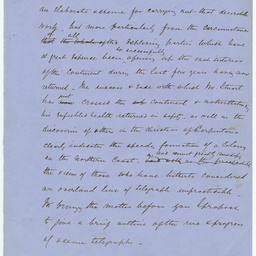 an elaborate scheme for carrying out that desirable
work, but more particularly from the circumstance
that all exploring parties which have
so successfully
at great expence been opening up the vast interior
of the Continent during the last few years having now
returned. The success & ease with which Mr Stuart
just
has crossed the Continent & notwithstanding
his enfeebled health returned in safety, as well as the
discoveries of others in the direction of Carpentaria
clearly indicate the speedy formation of a Colony
on the Northern Coast, and must greatly modify
the views of those who have hitherto considered
an overland line of telegraph impracticable.
To bring the matter before you I propose
to give a brief outline of the rise & progress
of telegraph